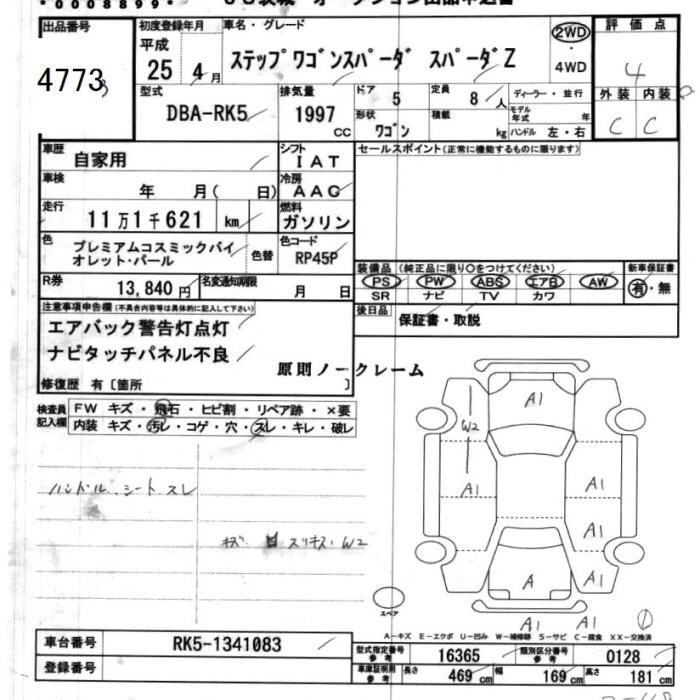 出品番号
4773
初度登録年月
平成
25 4月
車名・グレード
ステップワゴンスパーダ スパーダZ
2WD
4WD
評価点
4
外装 内装
C C
型式
DBA-RK5
排気量
1997
CC
ドア
5
定員
8 人
形状
ワゴン
積載
kg
ディーラー・並行
モデル年式 年
ハンドル 左・右
車歴
自家用
シフト
IAT
セールスポイント(正常に機能するものに限ります)
車検
年 月( 日)
冷房
AAC
走行
11万1千621 km
燃料
ガソリン
色
プレミアムコスミックバイ
オレット・パール
色替
色コード
RP45P
R券
13,840 円
名変通知期限
月 日
装備品 (純正品に限り○をつけてください)
PS PW ABS エアB AW
SR ナビ TV カワ
新車保証書
有・無
後日品
保証書・取説
注意事項申告欄(不具合内容等は具体的に記入して下さい)
エアバック警告灯点灯
ナビタッチパネル不良
原則ノークレーム
修復歴 有〔箇所 〕
検査員
記入欄
FW キズ・飛石・ヒビ割・リペア跡・×要
内装 キズ・汚レ・コゲ・穴・スレ・キレ・破レ
ハンドル、シート スレ
キズ スリキズ・W2
A1
W2
A1
A1
A1
A
A1
A1 A1
スペア
A-キズ E-エクボ U-凹み W-補修跡 S-サビ C-腐食 XX-交換済
車台番号
RK5-1341083
登録番号
型式指定番号
参考
16365
類別区分番号
参考
0128
車庫証明用
参考
長さ
469 cm
幅
169 cm
高さ
181 cm